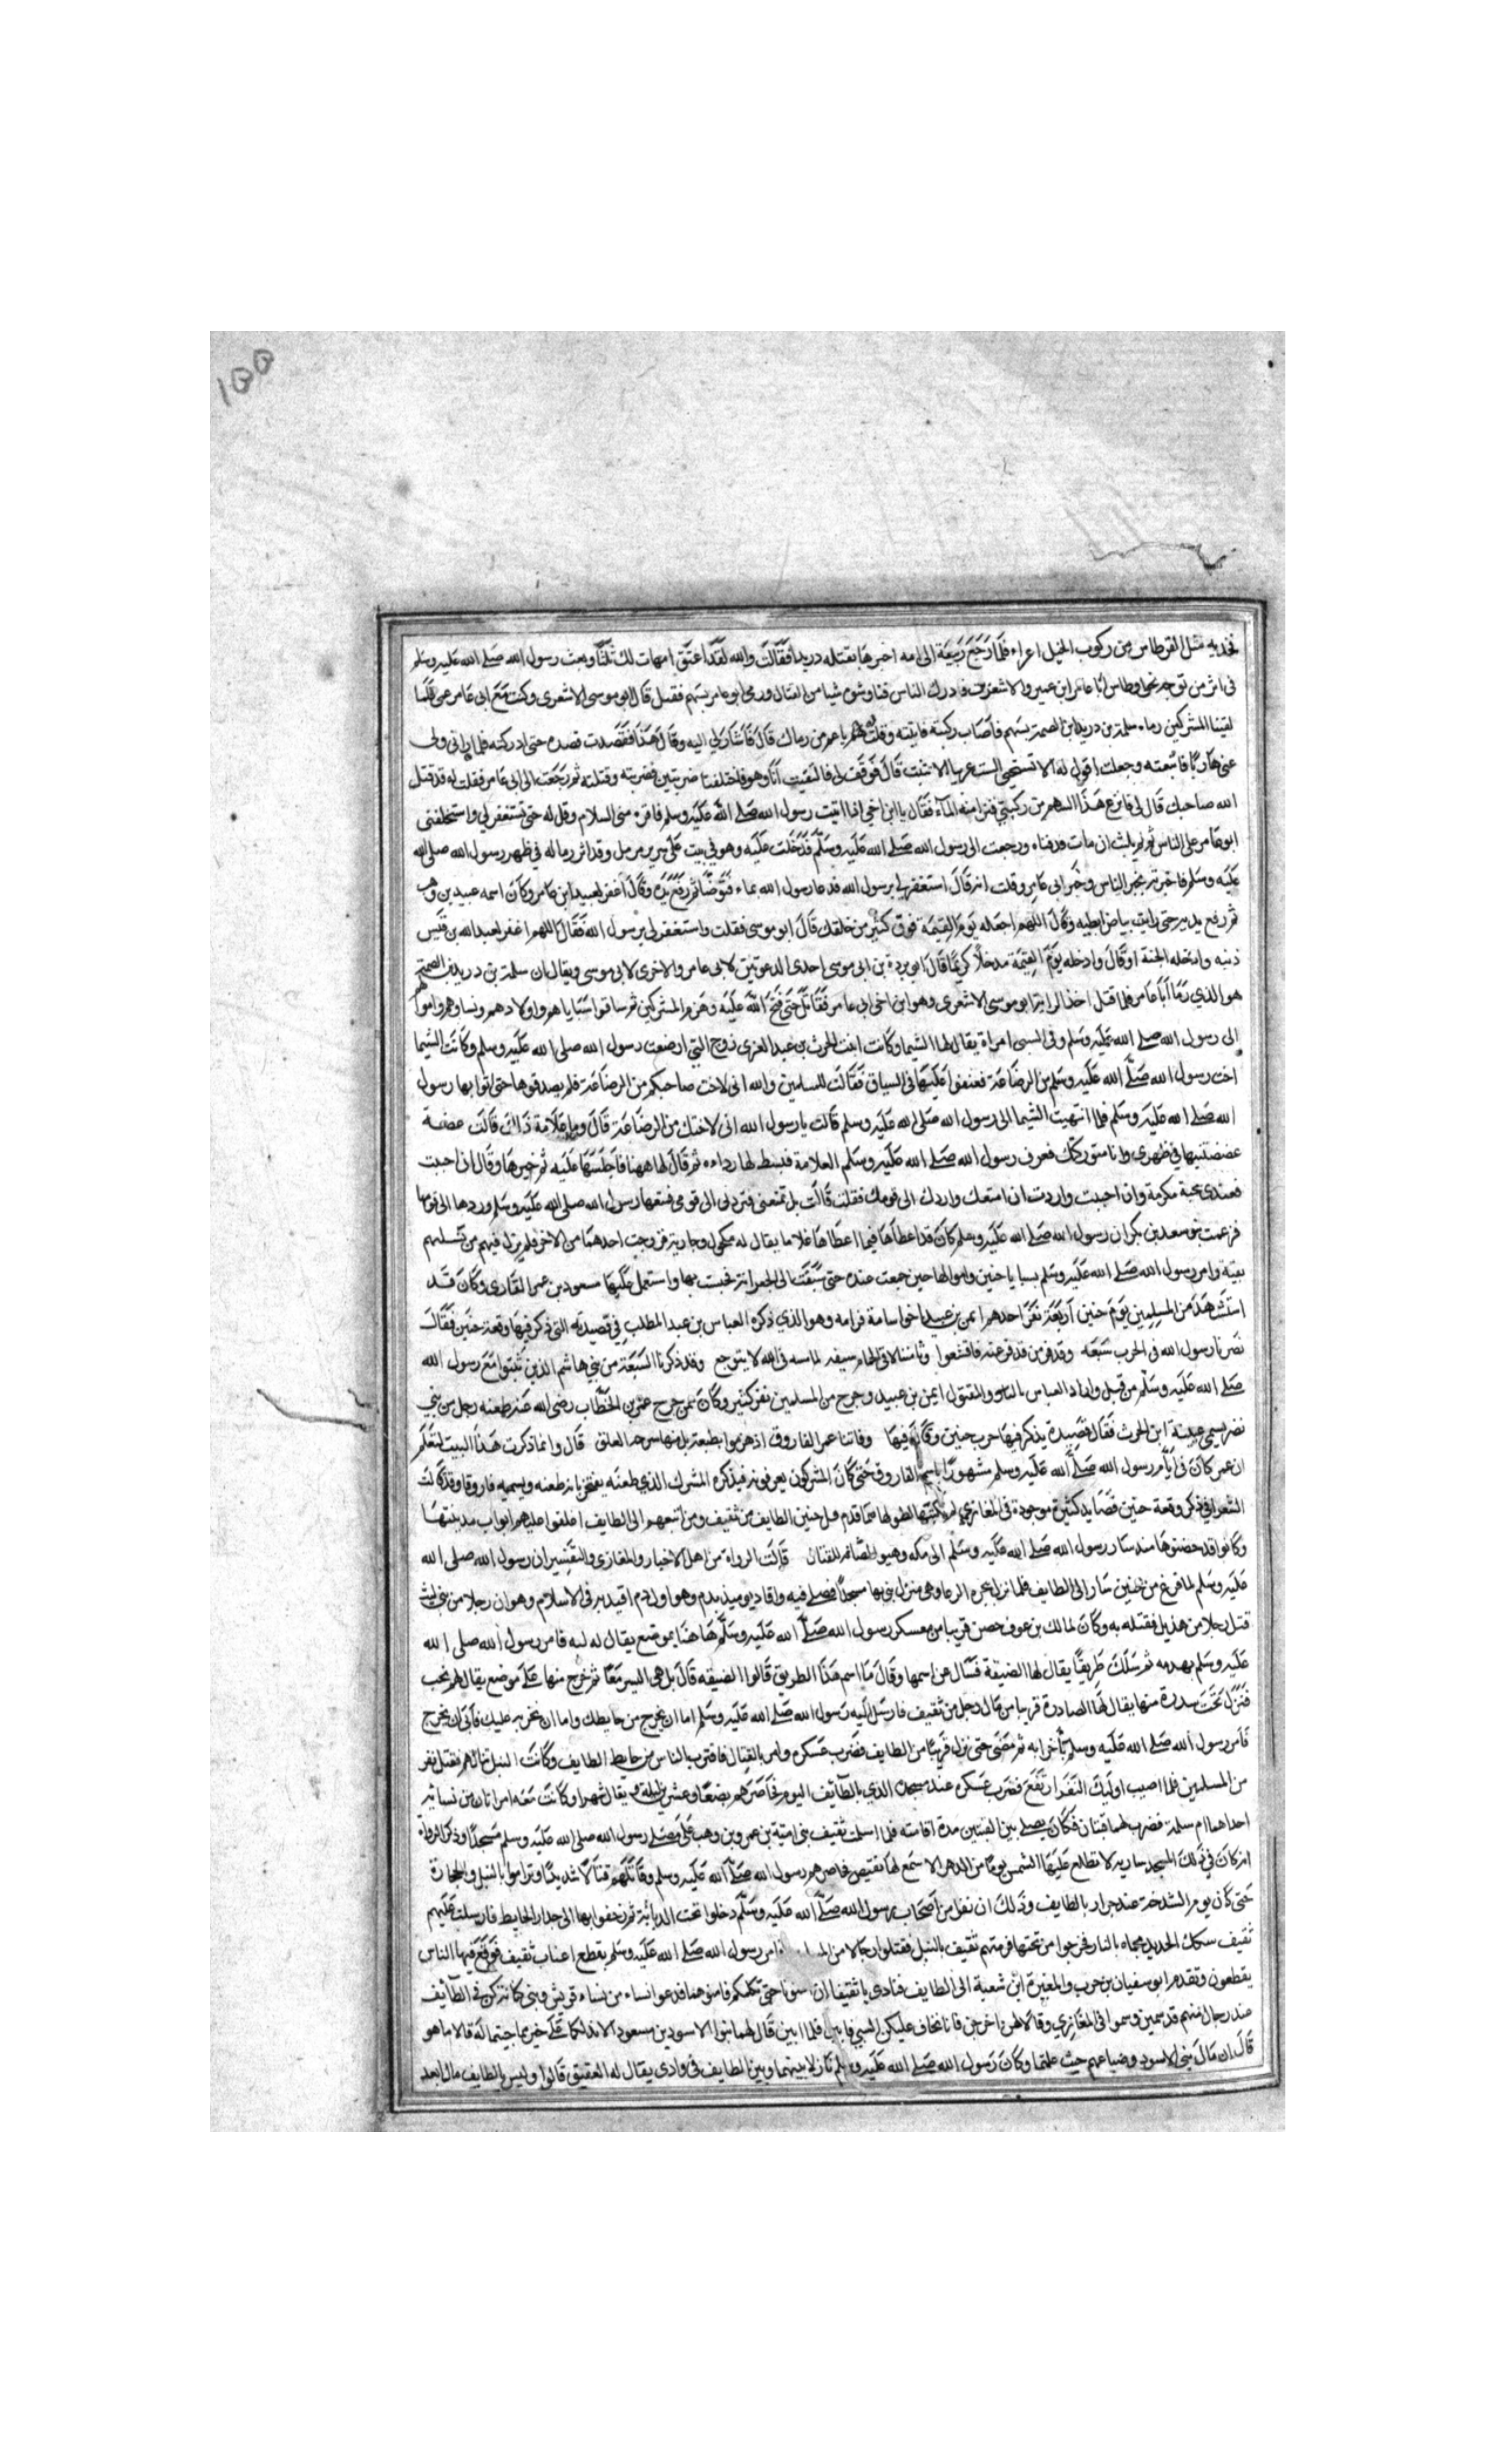 ١٥٥
فخذيه مثل القرطاس من ركوب الخيل اعراء فلما رجع ربيعة الى امه اخبرها بقتله دريدا فقالت والله لقد اعتق امهات لك ثلثا وبعث رسول الله صلى الله عليه وسلم
فى اثر من توجه نحو اوطاس ابا عامر ابن عمير والاشعرى فادرك الناس فناوشوه شيا من القتال ورمى ابو عامر بسهم فقتل قال ابو موسى الاشعرى وكنت مع ابى عامر عمى فلما
لقينا المشركين رماه سلمة بن دريد ابن الصمة بسهم فاصاب ركبته فاتيته وقلت يا عم من رماك قال فاشار لي اليه وقال هذا فقصدت قصده حتى ادركته فلما رانى ولى
عنى هاربا فاتبعته وجعلت اقول له الا تستحي الست عربيا الا تثبت قال فوقف لى فالتقيت انا وهو فاختلفنا ضربتين فضربته وقتلته ثم رجعت الى ابى عامر فقلت له قد قتل
الله صاحبك قال لي فانزع هذا السهم من ركبتي فنزا منه المآء فقال يا ابن اخي اذا اتيت رسول الله صلى الله عليه وسلم فاقره منى السلام وقل له حتى تستغفر لي واستخلفنى
ابو عامر على الناس ثم لم يلبث ان مات فدفناه ورجعت الى رسول الله صلى الله عليه وسلم فدخلت عليه وهو في بيت على سرير مرمل وقد اثر رماله في ظهر رسول الله صلى الله
عليه وسلم فاخبرته بخبر الناس وخبر ابى عامر وقلت انه قال استغفر لي يرسول الله فدعا رسول الله بماء فتوضا ثم رفع يده وقال اغفر لعبيد ابن عامر وكان اسمه عبيد بن وهب
ثم رفع يديه حتى رايت بياض ابطيه وقال اللهم اجعله يوم القيمة فوق كثير من خلقك قال ابو موسى فقلت واستغفر لى يرسول الله فقال اللهم اغفر لعبد الله بن قيس
ذنبه وادخله الجنة او قال وادخله يوم القيمة مدخلا كريما قال ابو بردة بن ابى موسى احدى الدعوتين لابى عامر والاخرى لابى موسى ويقال ان سلمة بن دريد بن الصمة
هو الذي رما ابا عامر فلما قتل اخذ الراية ابو موسى الاشعرى وهو ابن اخى ابى عامر فقاتل حتى فتح الله عليه وهزم المشركين ثم ساقوا سبايا هم واولادهم ونساوهم واموالهم
الى رسول الله صلى الله عليه وسلم وفى السبى امراة يقال لها الشيما وكانت ابنت الحرث بن عبد العزى زوج التي ارضعت رسول الله صلى الله عليه وسلم وكانت الشيما
اخت رسول الله صلى الله عليه وسلم من الرضاعة فعنفوا عليها فى السياق فقالت للمسلمين والله انى لاخت صاحبكم من الرضاعة فلم يصدقوها حتى اتوا بها رسول
الله صلى الله عليه وسلم فلما انتهيت الشيما الى رسول الله صلى الله عليه وسلم قالت يا رسول الله انى لاختك من الرضاعة قال وما علامة ذلك قالت عضة
عضضتنيها في ظهرى وانا متوركتك فعرف رسول الله صلى الله عليه وسلم العلامة فبسط لها رداءه ثم قال لها ههنا فاجلسها عليه ثم خيرها وقال ان احببت
فعندى محبة مكرمة وان احببت واردت ان امتعك واردك الى قومك فقلت قالت بل تمتعنى وتردنى الى قومى فمتعها رسول الله صلى الله عليه وسلم وردها الى قومها
فزعمت بنو سعد بن بكر ان رسول الله صلى الله عليه وسلم كان قد اعطاها فيما اعطاها غلاما يقال له مكحول وجارية فزوجت احدهما من الاخر فلم يزل فيهم من نسلهم
بقية وامر رسول الله صلى الله عليه وسلم بسبايا حنين واموالها حين جمعت عنده حتى سبقت الى الجعرانة فحبست بها واستعمل عليها مسعود بن عمر القارى وكان قد
استشهد من المسلمين يوم حنين اربعة نفر احدهم ايمن بن عبيد اخوا سامة من امه وهو الذي ذكره العباس بن عبد المطلب في قصيدته التى ذكر فيها وقعة حنين فقال
نصرنا رسول الله فى الحرب سبعه وقد فر من قد فر عنه فاقشعوا وثامننا لاقى الحمام بسيفه لما مسه فى الله لا يتوجع وقد ذكرنا السبعة من بنى هاشم الذين ثبتوا مع رسول الله
صلى الله عليه وسلم من قبل واراد العباس بالثامن والمقتول ايمن بن عبيد وجرح من المسلمين نفر كثير وكان ممن جرح عمر بن الخطاب رضى الله عنه طعنه رجل من بني
نضر يسمى ابن الحرث فقال قصيدة يذكر فيها حرب حنين وقال فيها وفاتنا عمر الفاروق اذ هزموا بطعنة بل منها سرجه العلق قال وانما ذكرت هذا البيت لتعلم
ان عمر كان فى ايام رسول الله صلى الله عليه وسلم مشهورا باسم الفاروق حتى كان المشركون يعرفونه فيذكره المشرك الذي طعنه يفتخر بانه طعنه ويسميه فاروقا وقد قالت
الشعرا في ذكر وقعة حنين قصايد كثيرة موجودة فى المغازي لم نكتبها لطولها فما قدم فل حنين الطايف من ثقيف ومن اتبعهم الى الطايف اغلقوا عليهم ابواب مدينتها
وكانوا قد حضنوها منذ سار رسول الله صلى الله عليه وسلم الى مكه وهيوا الضايع للقتال قالت الرواة من اهل الاخبار والمغازى والتفسير ان رسول الله صلى الله
عليه وسلم لما فرغ من حنين سار الى الطايف فلما نزل بحره الرعا وهى منزل بنى بها مسجدا فصلى فيه واقاد يوميذ بدم وهو اول دم اقيد به فى الاسلام وهو ان رجلا من بنى ليث
قتل رجلا من هذيل فقتله به وكان لمالك بن عوف حصن قريبا من معسكر رسول الله صلى الله عليه وسلم هاهنا بموضع يقال له ليه فامر رسول الله صلى الله
عليه وسلم بهدمه ثم سلك طريقا يقال لها الضيقة فسال عن اسمها وقال ما اسم هذا الطريق قالوا الضيقه قال بل هى اليسر معا ثم خرج منها على موضع يقال له نخب
فنزل تحت سدرة منها يقال لها الصادرة قريبا من مال رجل من ثقيف فارسل اليه رسول الله صلى الله عليه وسلم اما ان يخرج من حايطك واما ان نخربه عليك فابى ان يخرج
فامر رسول الله صلى الله عليه وسلم باخرابه ثم مضى حتى نزل قريبا من الطايف فضرب عسكره وامر بالقتال فاقترب الناس من حايط الطايف وكانت النبل تنالهم فقتل نفر
من المسلمين فلما اصيب اوليك النفر ارتفع فضرب عسكره عند مسجده الذي بالطآئف اليوم فحاصرهم بضعا وعشرين ليلة ويقال شهرا وكانت معه امراتان من نسائه
احداهما ام سلمة فضرب لهما قبتان فكان يصلى بين القبتين مدة اقامته فلما اسلمت ثقيف بنى امية بن عمرو بن وهب على مصلى رسول الله صلى الله عليه وسلم مسجدا وذكر الرواة
انه كان في ذلك المسجد سارية لا تطلع عليها الشمس يوما من الدهر الا سمع لها نقيض فحاصرهم رسول الله صلى الله عليه وسلم وقاتلهم قتالا شديدا وتراموا بالنبل والحجارة
حتى كان يوم الشدخة عند جدار بالطايف وذلك ان نفرا من اصحاب رسول الله صلى الله عليه وسلم دخلوا تحت الدبابة ثم زحفوا بها الى جدار الحايط فارسلت عليهم
ثقيف سكك الحديد محماه بالنار فخرجوا من تحتها فرمتهم ثقيف بالنبل فقتلوا رجالا من فامر رسول الله صلى الله عليه وسلم بقطع اعناب ثقيف فوقع فيها الناس
يقطعون وتقدم ابو سفيان بن حرب والمغيرة ابن شعبة الى الطايف فنادى يا ثقيفا ان امنونا حتى نكلمكم فامنوهما فدعوا نساء من نساء قريش وبنى كنانة كن فى الطآئف
عند رجال منهم قد سمين وسموا فى المغازي وقالا لهن اخرجن فانا نخاف عليكن السبي فابين فلما ابين قال لهما ابنوا الاسود بن مسعود الا ادلكما على خير مما جيتما له قالا ما هو
قال ان مال بنى الاسود وضياعهم حيث علمتما وكان رسول الله صلى الله عليه وسلم نازلا بينهما وبين الطايف فى وادى يقال له العقيق قالوا وليس بالطايف مال ابعد